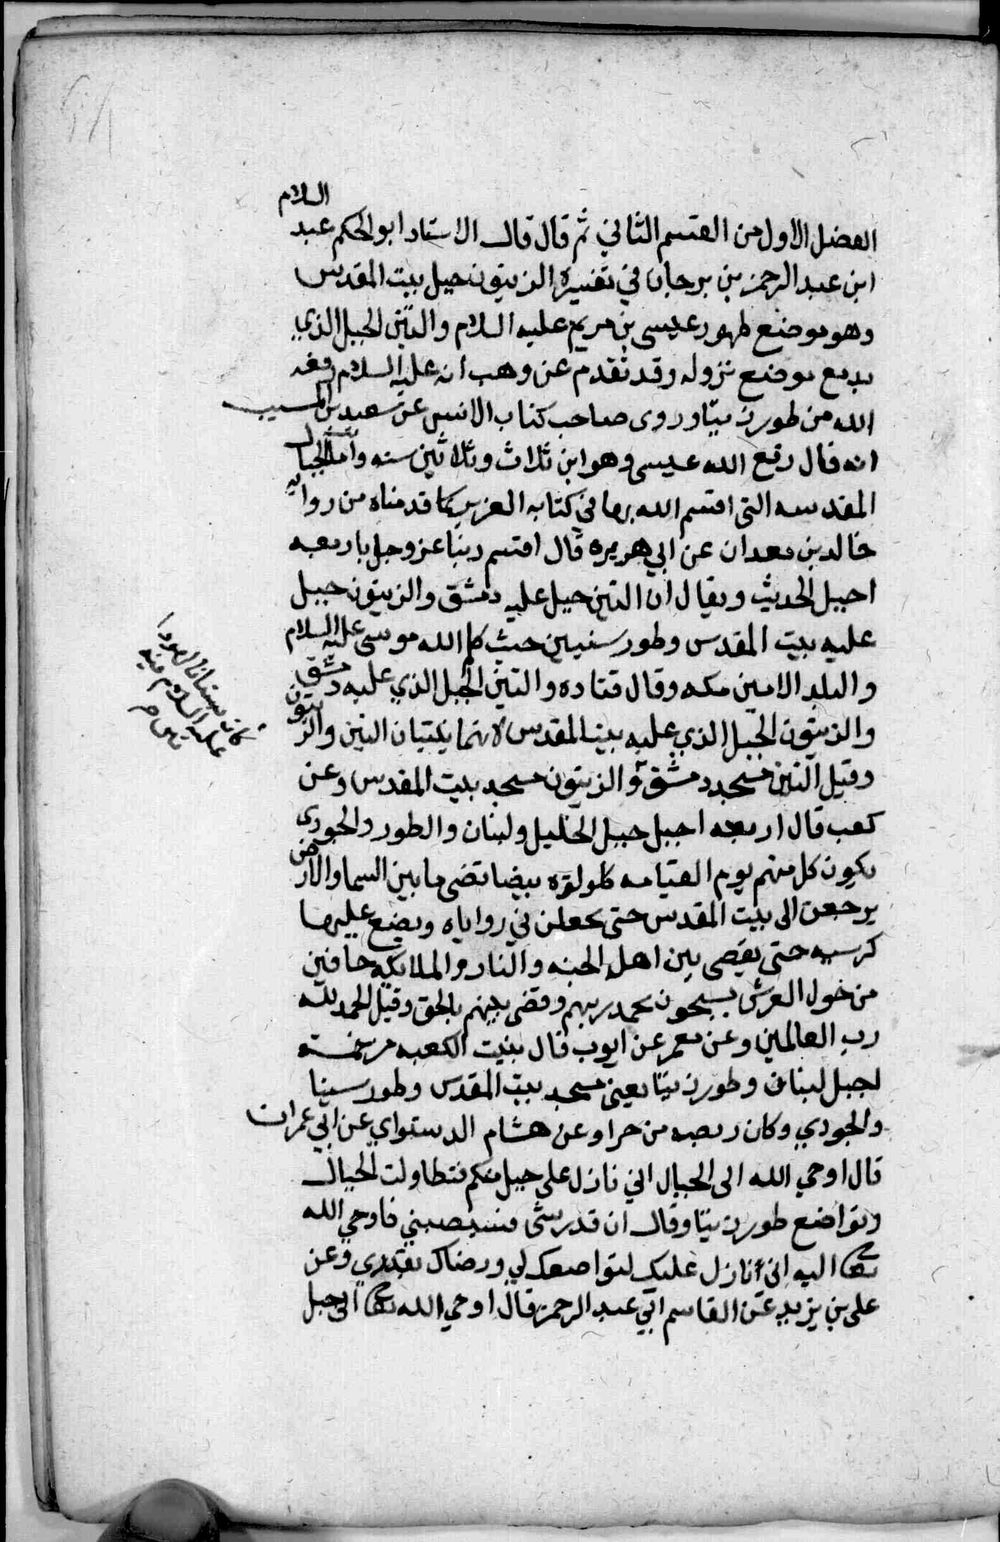 الفصل الاول من القسم الثاني ثم قال قال الاستاد ابو الحكم عبد السلام
ابن عبد الرحمن بن برجان في تفسيره الزيتون جبل بيت المقدس
وهو موضع ظهور عيسى بن مريم عليه السلام والتين الجبل الذي
موضع نزوله وقد تقدم عن وهب انه عليه السلام رفعه
الله من طور زيتا وروى صاحب كتاب الانس عن سعيد بن المسيب
انه قال رفع الله عيسى وهو ابن ثلاث وثلاثين سنه واما الجبال
المقدسه التي اقسم الله بها في كتابه العزيز كما قدمناه من رواية
خالد بن معدان عن ابي هريره قال اقسم ربنا عز وجل باربعه
اجبل الحديث ويقال ان التين جبل عليه دمشق والزيتون جبل
عليه بيت المقدس وطور سنيين حيث كلم الله موسى عليه السلام
والبلد الامين مكه وقال قتاده والتين الجبل الذي عليه دمشق
والزيتون الجبل الذي عليه بيت المقدس لانهما ينبتان التين والزيتون
وقيل التين مسجد دمشق والزيتون مسجد بيت المقدس وعن
كعب قال اربعه اجبل جبل الخليل ولبنان والطور والجودي
يكون كل منهم يوم القيامه كلولوه بيضا تضى ما بين السما والارض
يرجعن الى بيت المقدس حتى يجعلن في زواياه ويضع عليها
كرسيه حتى يقضى بين اهل الجنه والنار والملايكه حافين
من حول العرش يسبحون بحمد ربهم وقضى بينهم بالحق وقيل الحمد لله
رب العالمين وعن معمر عن ايوب قال بنيت الكعبه من خمسه
اجبل لبنان وطور زيتا يعني مسجد بيت المقدس وطور سينا
والجودي وكان ربضه من حرا وعن هشام الدستواي عن ابي عمران
قال اوحي الله الى الجبال اني نازل على جبل منكم فتطاولت الجبال
وتواضع طور زيتا وقال ان قدر شى فسيصيبني فاوحي الله
تعالى اليه اني نازل عليك لتواضعك لي ورضاك بقدري وعن
على بن يزيد عن القاسم ابي عبد الرحمن قال اوحي الله تعالى الى جبل
كان بستانا لهود
عليه السلام فيه